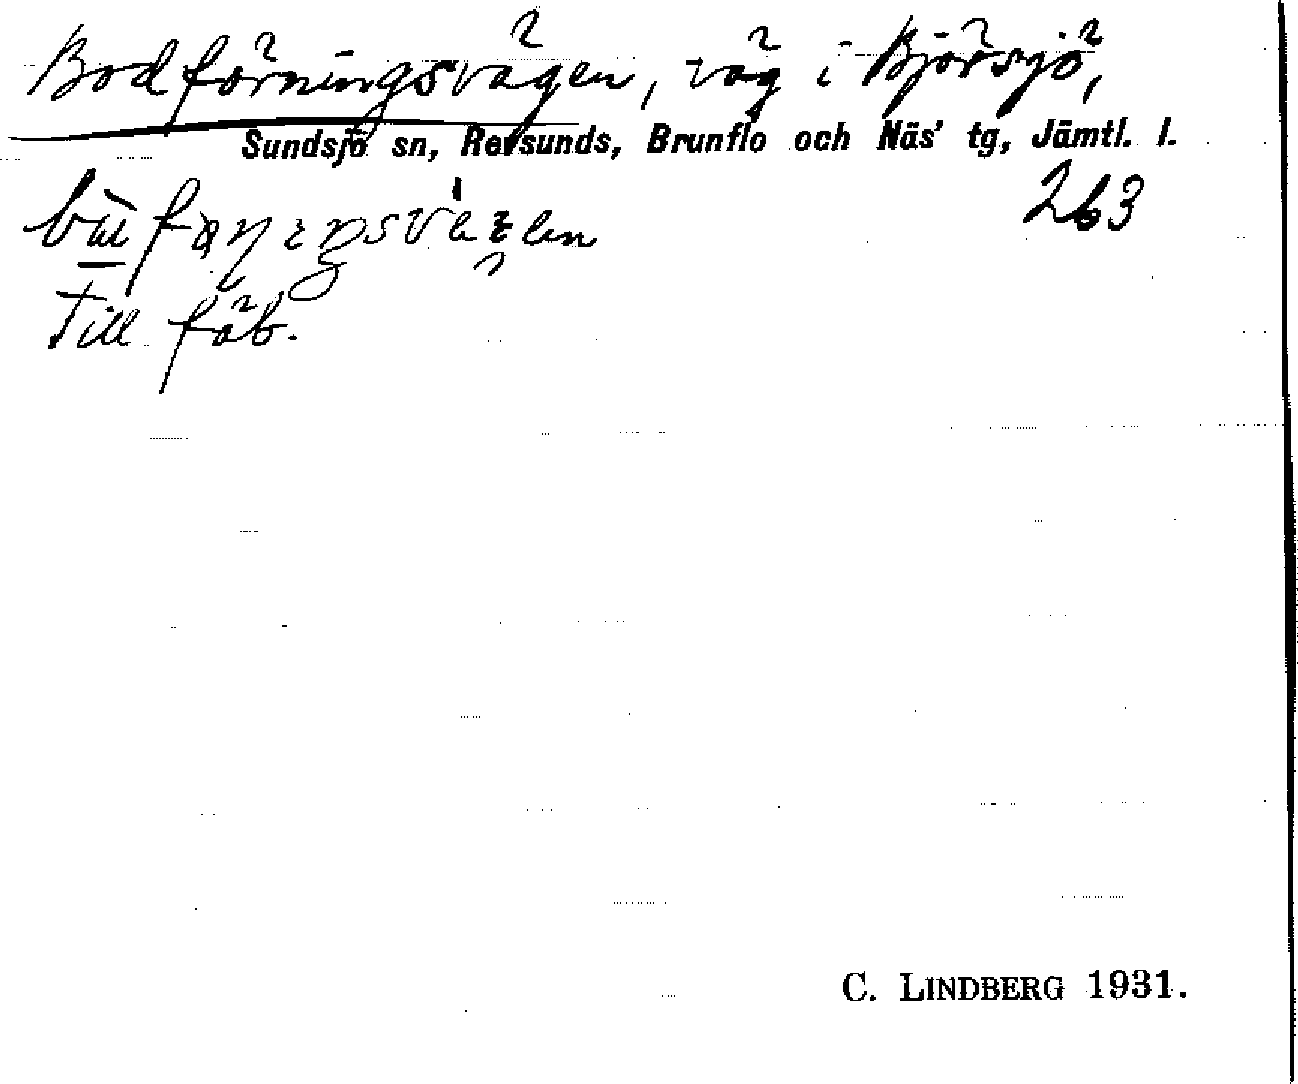 Bodförningsvägen, väg i Björsjö,
Sundsjö sn, Revsunds, Brunflo och Näs' tg, Jämtl. l.
263
Till fäb.
C. LINDBERG 1931.